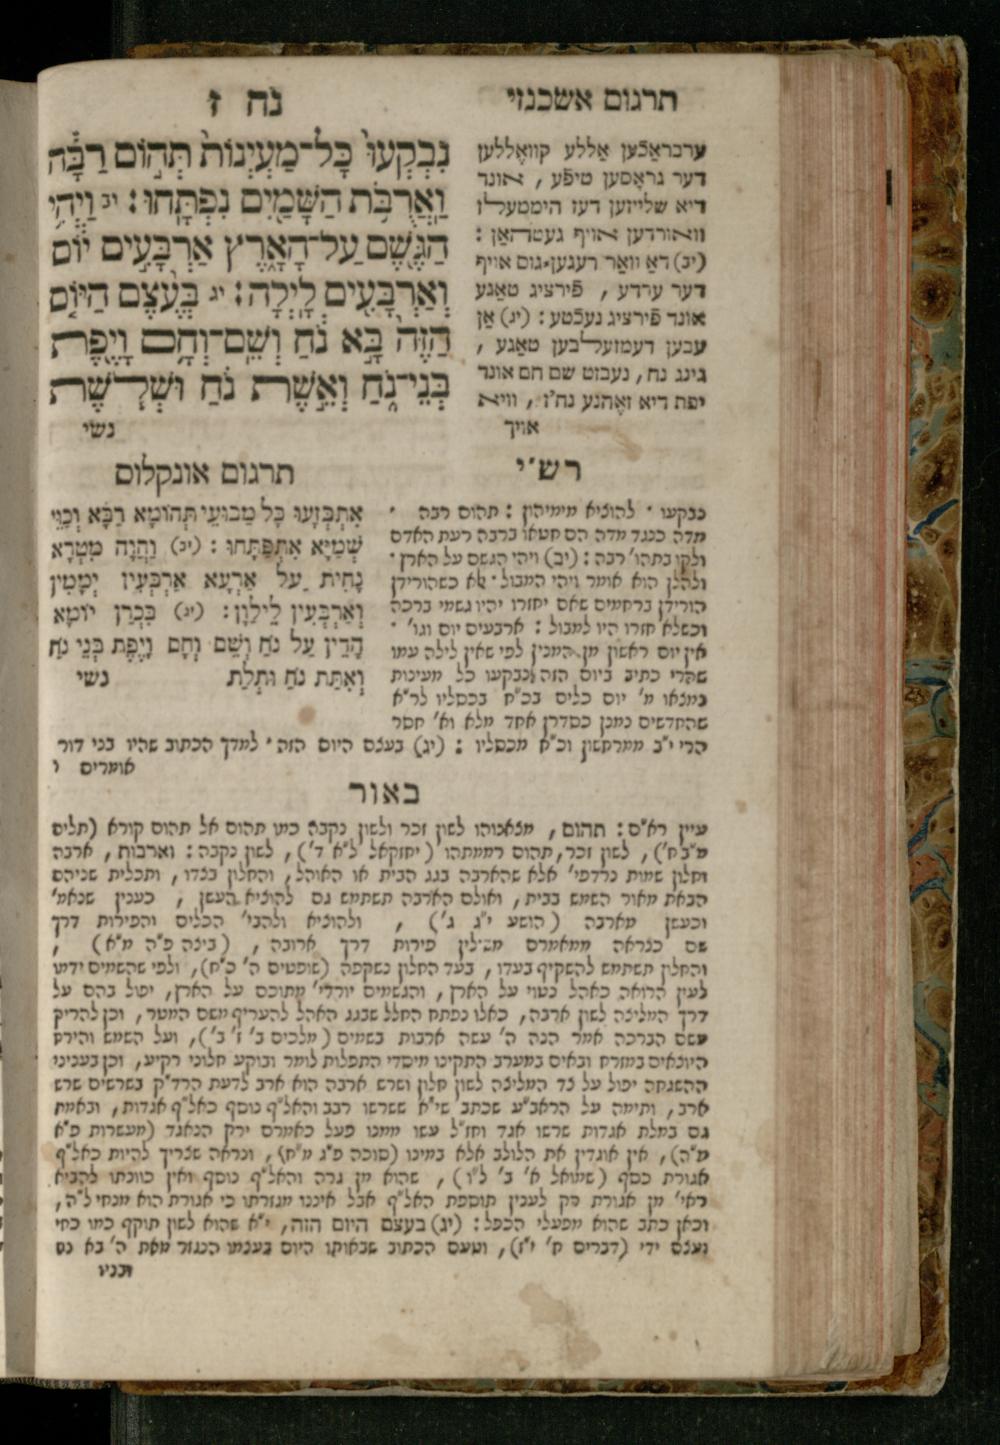 נח ז
נִבְקְעוּ כָּל־מַעְיְנוֹת תְּהוֹם רַבָּה
וַאֲרֻבֹּת הַשָּׁמַיִם נִפְתָּחוּ: יב וַיְהִי
הַגֶּשֶׁם עַל־הָאָרֶץ אַרְבָּעִים יוֹם
וְאַרְבָּעִים לָיְלָה: יג בְּעֶצֶם הַיּוֹם
הַזֶּה בָּא נֹחַ וְשֵׁם־וְחָם וָיֶפֶת
בְּנֵי־נֹחַ וְאֵשֶׁת נֹחַ וּשְׁלֹשֶׁת
נשי
תרגום אשכנזי
ערבראַכֿען אַללע קוואֶללען
דער גראָסען טיפֿע, אונד
דיא שלייזען דעז הימטעלז
וואורדען אויף געטהאַן:
(יב) דאַ וואַר רעגען־גוס אויף
דער ערדע, פֿירציג טאַגע
אונד פֿירציג נעכֿטע: (יג) אַן
עבען דעמזעלבען טאַגע,
גינג נח, נעבזט שם חם אונד
יפת דיא זאֶהנע נח'ז, וויא
אויך
תרגום אונקלוס
אִתְבְּזָעוּ כָּל מַבּוּעֵי תְּהוֹמָא רַבָּא וְכַוֵּי
שְׁמַיָּא אִתְפַּתָּחוּ: (יב) וַהֲוָה מִטְרָא
נָחִית עַל אַרְעָא אַרְבְּעִין יְמָמִין
וְאַרְבְּעִין לֵילָוָן: (יג) בִּכְרַן יוֹמָא
הָדֵין עַל נֹחַ וְשֵׁם וְחָם וָיֶפֶת בְּנֵי נֹחַ
וְאִתַּת נֹחַ וּתְלַת
נשי
רש"י
נבקעו · להוציא מימיהון: תהום רבה ·
מדה כנגד מדה הם חטאו ברבה רעת האדם
ולקו בתהו' רבה: (יב) ויהי הגשם על הארץ ·
ולהלן הוא אומר ויהי המבול · לא כשהורידן
הורידן ברחמים שאם יחזרו יהיו גשמי ברכה
וכשלא חזרו היו למבול: ארבעים יום וגו' ·
אין יום ראשון מן המנין לפי שאין לילה עמו
שהרי כתיב ביום הזה נבקעו כל מעינות
נמצאו מ' יום כלים בכ"ח בכסליו לר"א
שהחדשים נמנן כסדרן אחד מלא וא' חסר
הרי י"ב ממרחשון וכ"ח מכסליו: (יג) בעצם היום הזה · למדך הכתוב שהיו בני דור
אומרים
באור
עיין רא"ם: תהום, מצאנוהו לשון זכר ולשון נקבה כמו תהום אל תהום קורא (תלים
מ"ב ח'), לשון זכר, תהום רממתהו (יחזקאל ל"א ד'), לשון נקבה: וארבות, ארבה
וחלון שמות נרדפי' אלא שהארבה בגג הבית או האוהל, והחלון בצדו, ותכלית שניהם
הבאת מאור השמש בבית, ואולם הארבה תשתמש גם להוציא העשן, כענין שנאמ'
וכעשן מארבה (הושע י"ג ג'), ולהוציא ולהבי' הכלים והפירות דרך
שם כנראה ממאמרם פירות דרך ארובה, (ביצה פ"ה מ"א),
והחלון תשתמש להשקיף בעדו, בעד החלון נשקפה (שופטים ה' כ"ח), ולפי שהשמים ידמו
לעין הרואה כאהל נטוי על הארץ, והגשמים יורדי' מתוכם על הארץ, יפול בהם על
דרך המליצה לשון ארבה, כאלו נפתח החלל שבגג האהל להעריף משם המטר, וכן להריק
משם הברכה אמר הנה ה' עשה ארבות בשמים (מלכים ב' ז' ב'), ועל השמש והירח
היוצאים במזרח ובאים במערב התקינו מיסדי התפלות לומר ובוקע חלוני רקיע, וכן בעניני
ההשגחה יפול על צד המליצה לשון חלון ושרש ארבה הוא ארב לדעת הרד"ק בשרשים שרש
ארב, ותימה על הראב"ע שכתב שי"א ששרשו רבב והאל"ף נוסף כאל"ף אגדות, ובאמת
גם במלת אגדות שרשו אגד וחז"ל עשו ממנו פעל כאמרם ירק הנאגד (מעשרות פ"א
מ"ה), אין אוגדין את הלולב אלא במינו (סוכה פ"ג מ"ח), ונראה שצריך להיות כאל"ף
אגורת כסף (שמואל א' ב' ל"ו), שהוא מן גרה והאל"ף נוסף ואין כוונתו להביא
ראי' מן אגורת רק לענין תוספת האל"ף אבל איננו מגזרתו כי אגורת הוא מנחי ל"ה,
וכאן כתב שהוא מפעלי הכפל: (יג) בעצם היום הזה, י"א שהוא לשון תוקף כמו כחי
ועצם ידי (דברים ח' י"ז), וטעם הכתוב שבאותו היום בעצמו הנגזר מאת ה' בא נח
ובניו